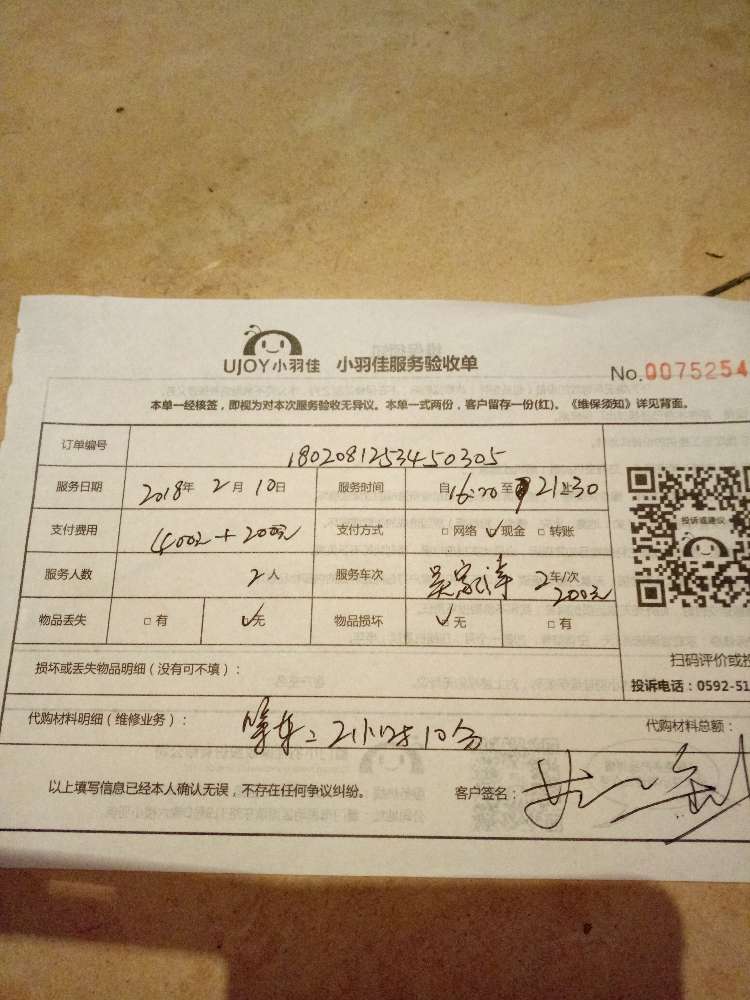 UJOY小羽佳 小羽佳服务验收单
No.0075254
本单一经核签，即视为对本次服务验收无异议。本单一式两份，客户留存一份(红)。《维保须知》详见背面。
订单编号 18020812534450305
服务日期 2018年 2月 10日 服务时间 自16:20至21:30
支付费用 400元+200元 支付方式 □网络 ✓现金 □转账
服务人数 2人 服务车次 2车/次
200元
物品丢失 □有 ✓无 物品损坏 ✓无 □有
投诉或建议
扫码评价或投
损坏或丢失物品明细（没有可不填）：
投诉电话：0592-51
代购材料明细（维修业务）： 等车：2小时10分 代购材料总额：
以上填写信息已经本人确认无误，不存在任何争议纠纷。 客户签名：